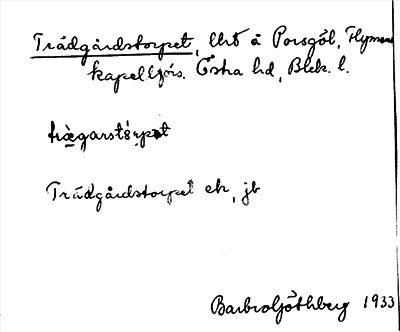 Trädgårdstorpet, lht å Porsgöl, Flymens
kapellförs. Östra hd, Blek. l.
Trädgårdstorpet ek, jb
Barbro Göthberg 1933